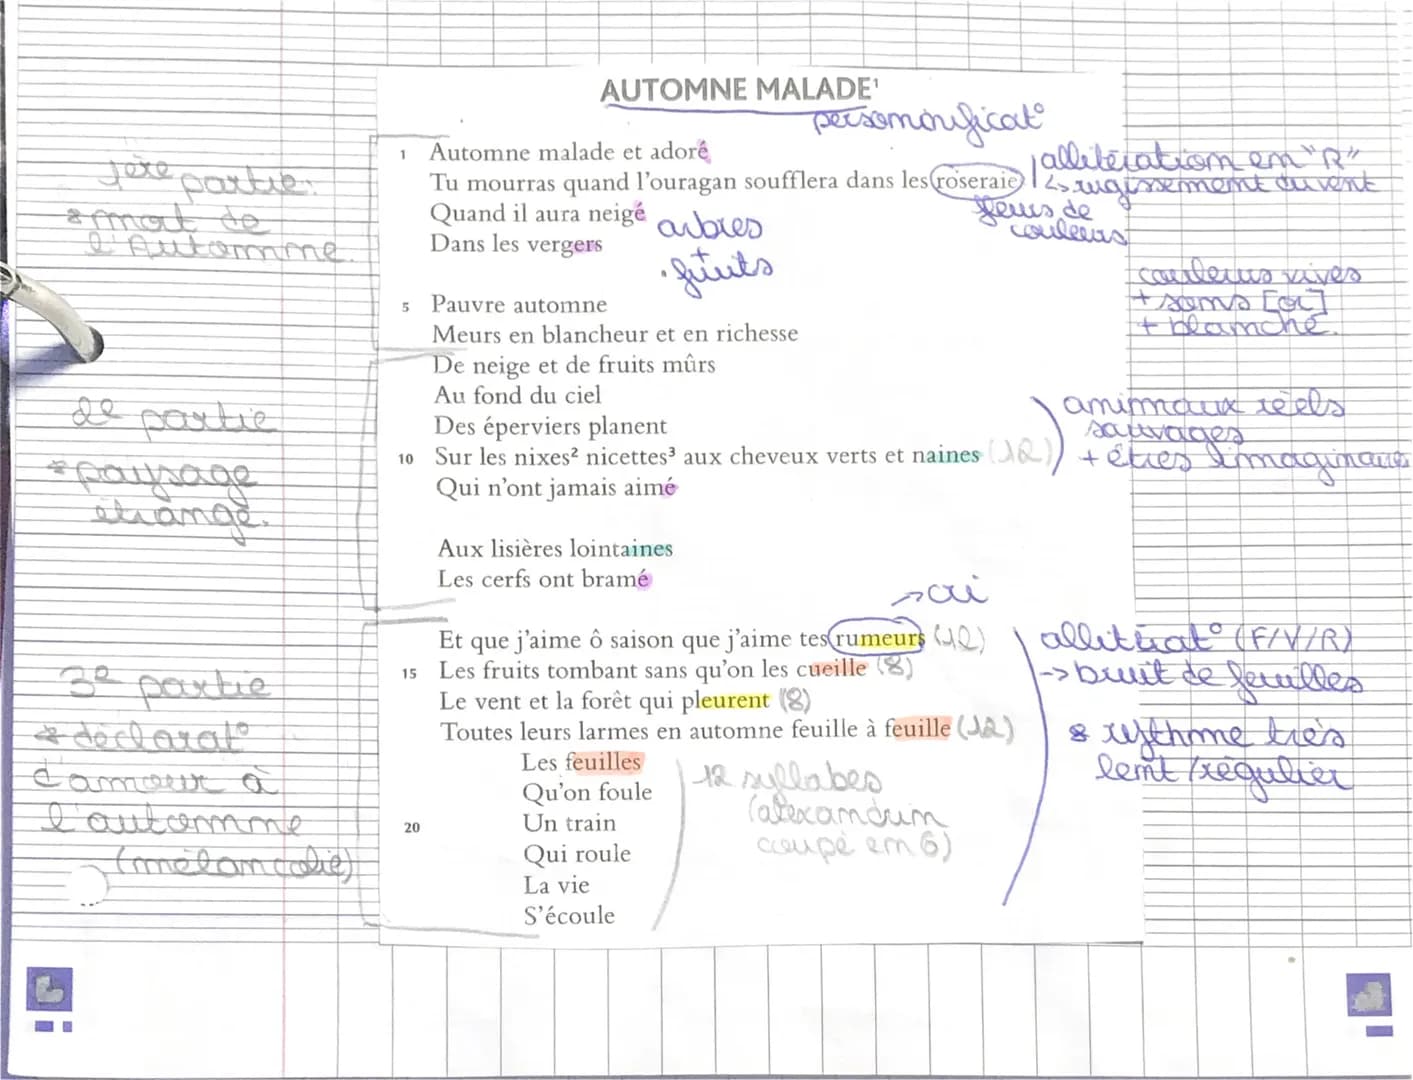 AUTOMNE MALADE¹
personnificat°
1 Automne malade et adoré
Tu mourras quand l'ouragan soufflera dans les roseraies
Quand il aura neigé
Dans les vergers
arbres
+
. fruits
allitération en "R"
↳ rugissement du vent
fleurs de
couleurs
couleurs vives
+ sons [or]
+ blanche.
1ère partie:
* mort de
l'Automne.
5 Pauvre automne
Meurs en blancheur et en richesse
De neige et de fruits mûrs
Au fond du ciel
Des éperviers planent
10 Sur les nixes² nicettes³ aux cheveux verts et naines (12)
Qui n'ont jamais aimé
animaux réels
sauvages
+ êtres imaginaires
2e partie
* paysage
étrange.
Aux lisières lointaines
Les cerfs ont bramé
→ cri
Et que j'aime ô saison que j'aime tes rumeurs (12)
15 Les fruits tombant sans qu'on les cueille (8)
Le vent et la forêt qui pleurent (8)
Toutes leurs larmes en automne feuille à feuille (12)
Les feuilles
Qu'on foule
20 Un train
Qui roule
La vie
S'écoule
12 syllabes
(alexandrin
coupé en 6)
allitérat° (F/V/R)
-> bruit de feuilles
* rythme très
lent / régulier
3e partie
* déclarat°
d'amour à
l'automne
(mélancolie)